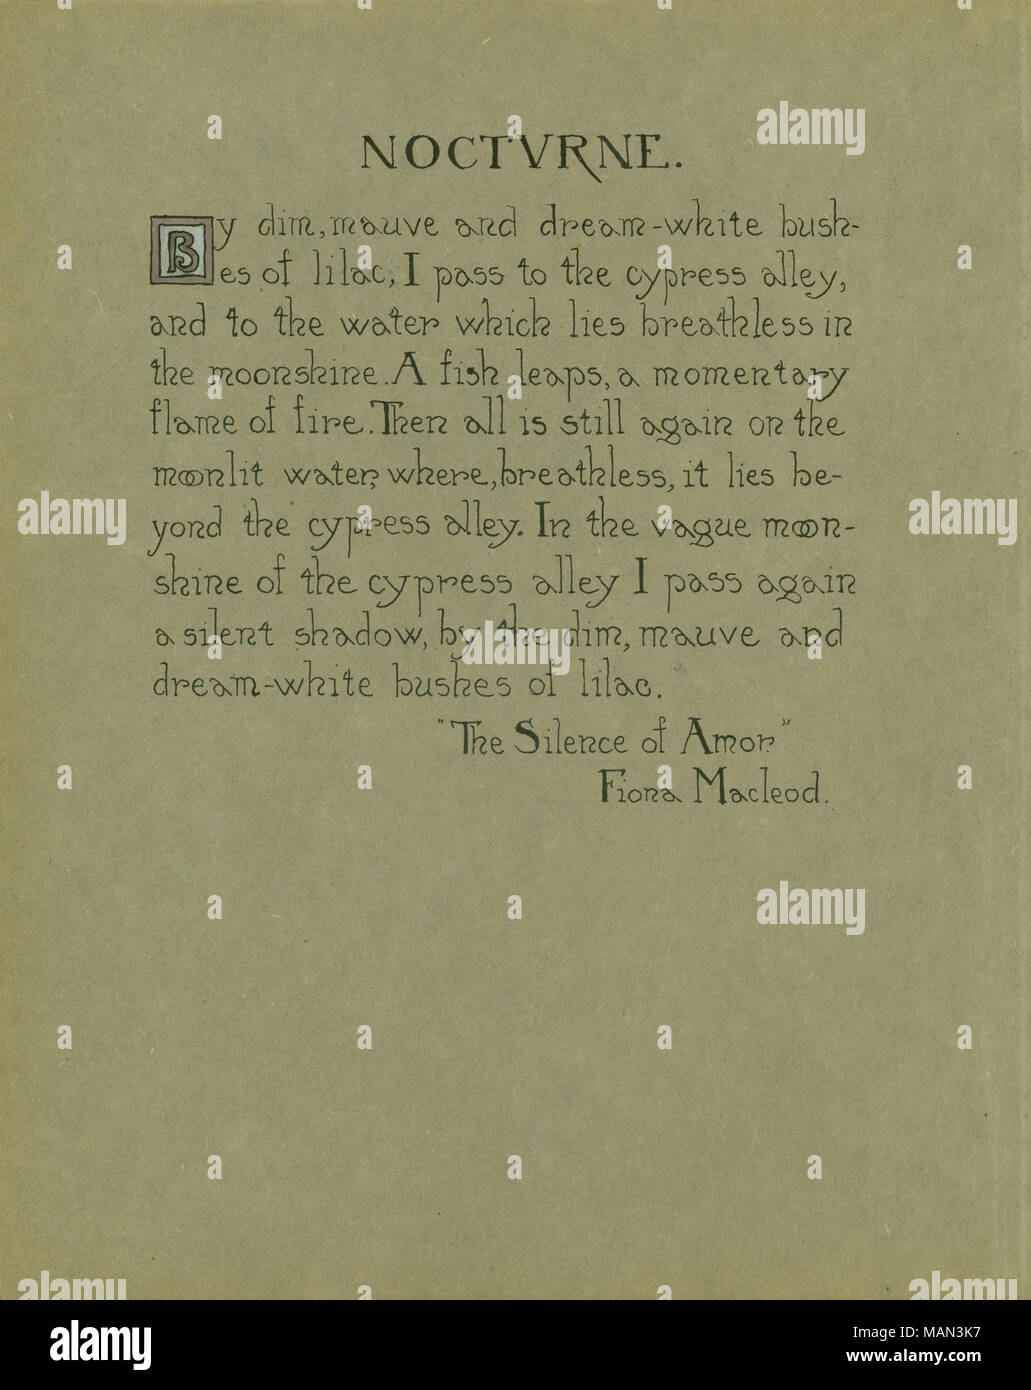 NOCTVRNE.
By dim, mauve and dream-white bush-
es of lilac, I pass to the cypress alley,
and to the water which lies breathless in
the moonshine. A fish leaps, a momentary
flame of fire. Then all is still again on the
moonlit water, where, breathless, it lies be-
yond the cypress alley. In the vague moon-
shine of the cypress alley I pass again
a silent shadow, by the dim, mauve and
dream-white bushes of lilac.
"The Silence of Amor"
Fiona Macleod.
alamy
alamy
Image ID: MAN3K7
www.alamy.com